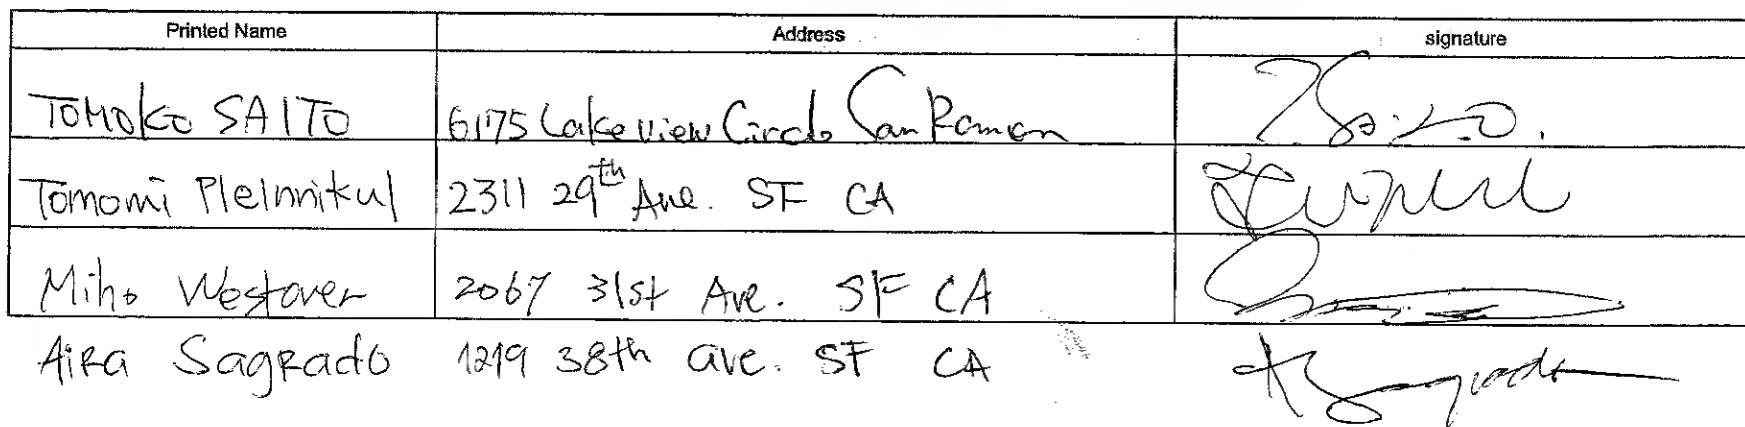 Printed Name Address signature
TOMOKO SAITO 6175 Lakeview Circle San Ramon
Tomomi 2311 29th Ave. SF CA
Miho Westover 2067 31st Ave. SF CA
Aira Sagrado 1219 38th ave. SF CA